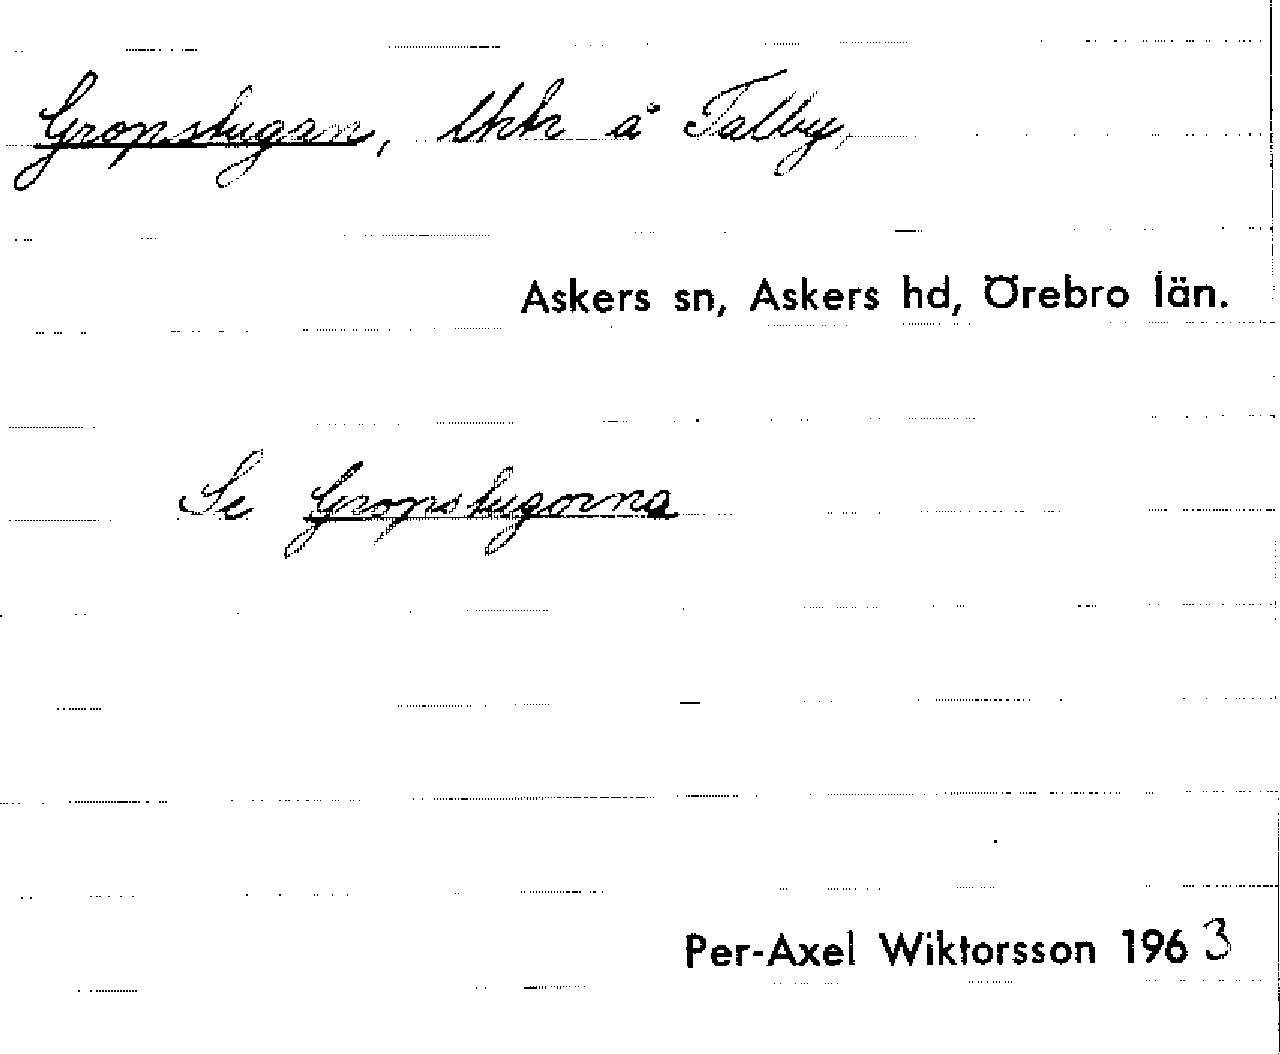 Gropstugan, lhk å Talby,
Askers sn, Askers hd, Örebro län.
Se Gropstugorna
Per-Axel Wiktorsson 1963